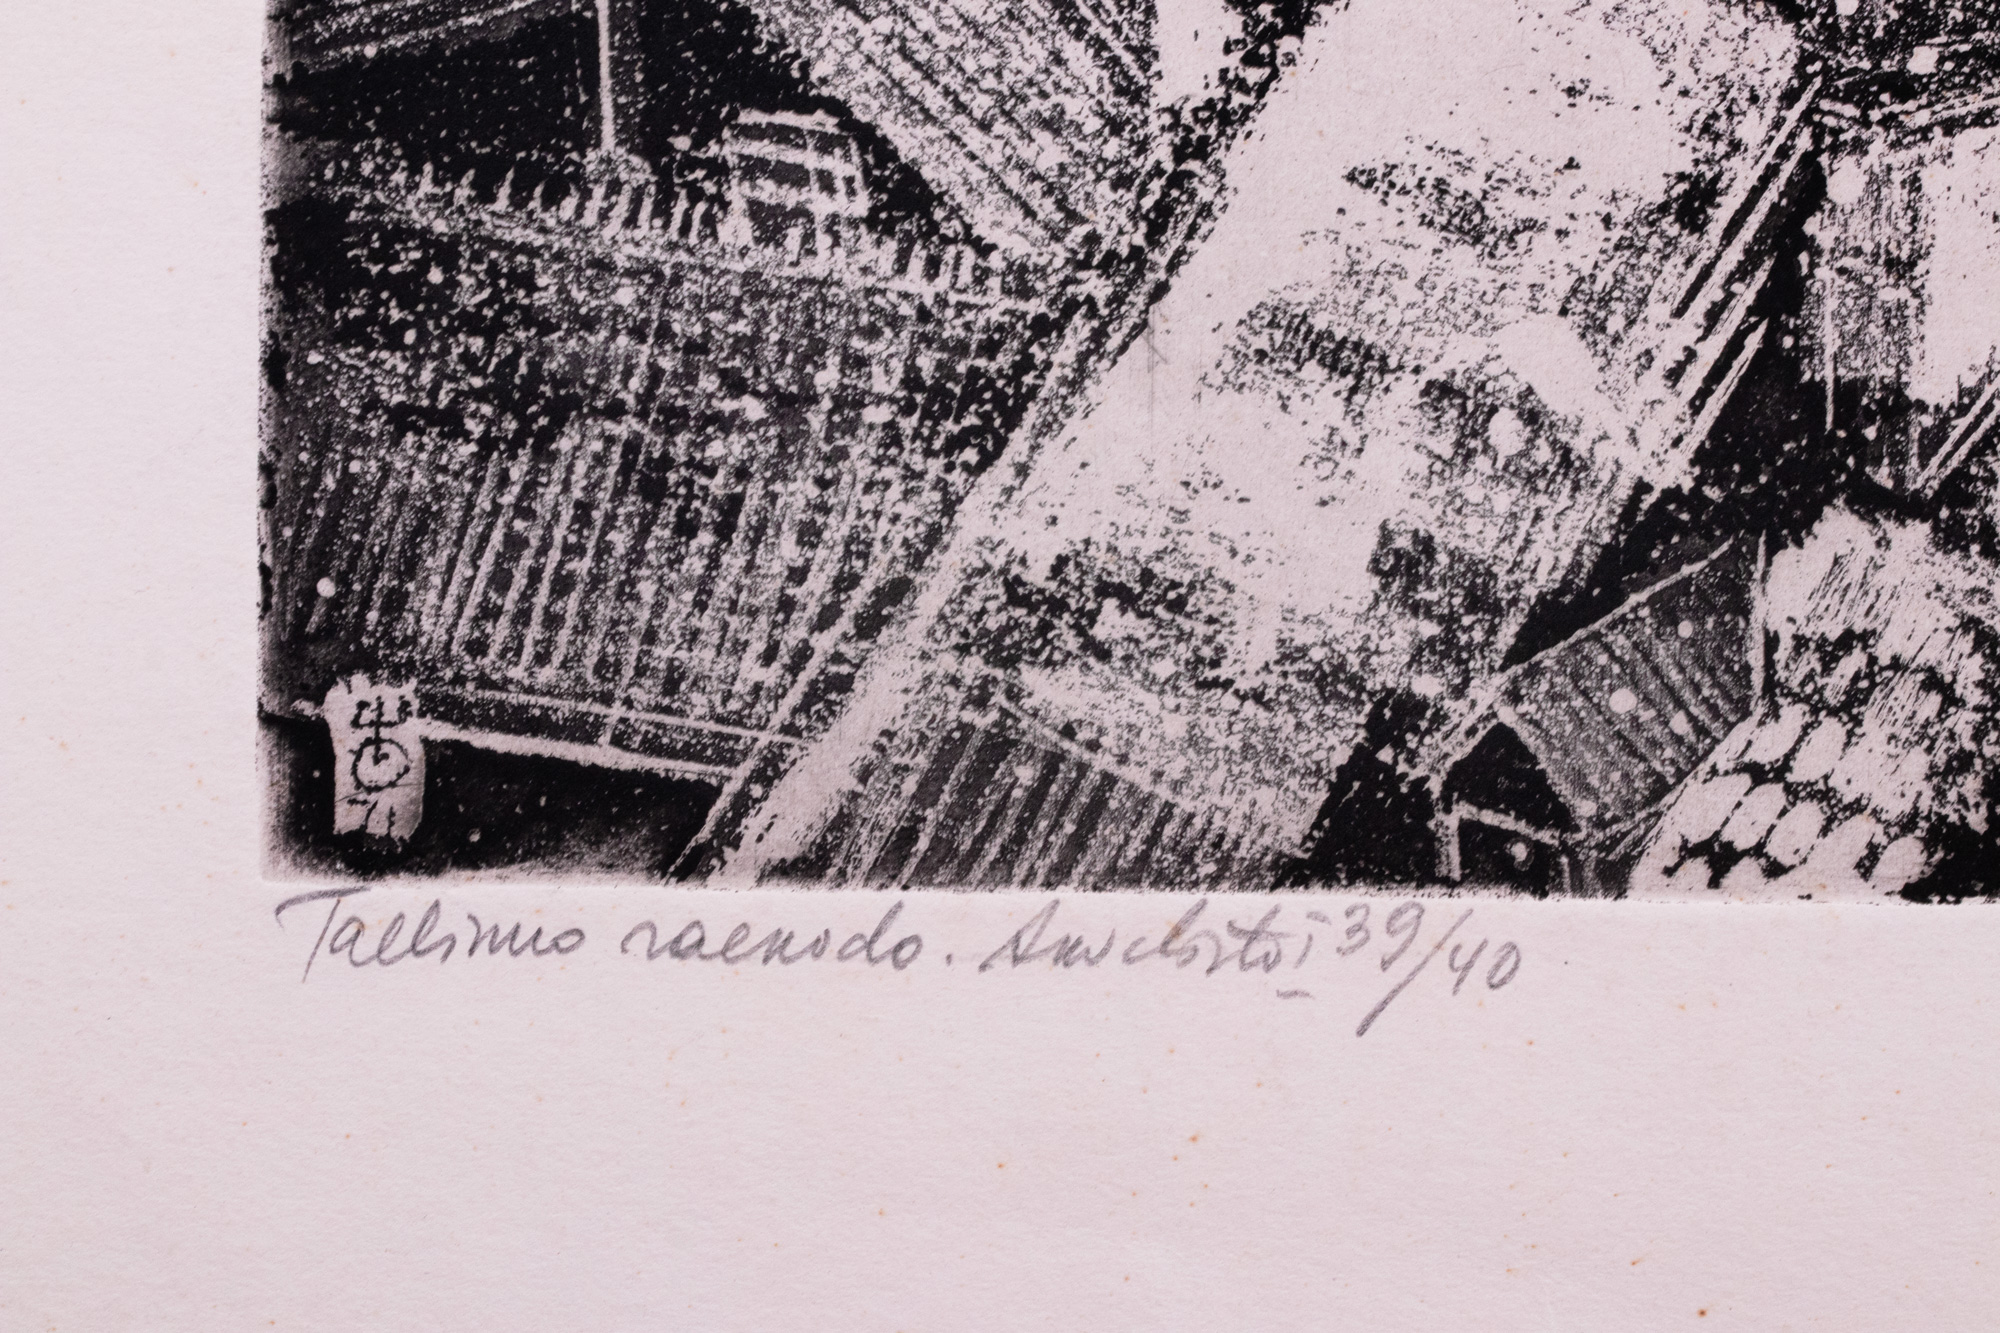 Tallinna raekoda. I 39/40